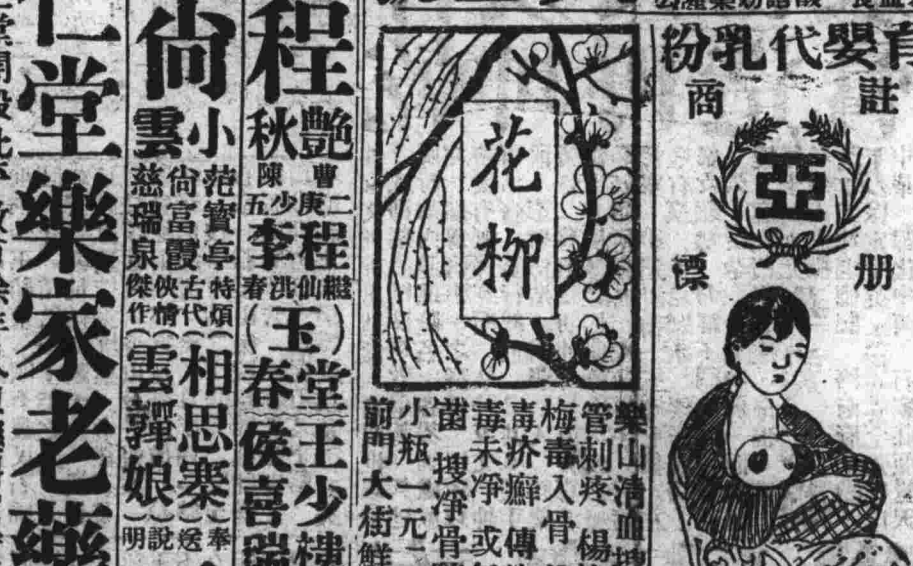 育嬰代乳粉
註
商
亞
册
標
花柳
樂山清血搜
管刺疼 楊
梅毒入骨
毒疥癬 傳
毒未淨 或
菌 搜淨骨
小瓶一元二
前門大街鮮
程
艷秋
曹二庚
陳少五
程繼仙
李洪春
(玉堂春)
王少樓
侯喜瑞
尙
小雲
范寶亭
尙富霞
慈瑞泉
特煩
古代
俠情
傑作
(相思寨)
(雲嚲娘)
奉送
說明
仁堂樂家老藥